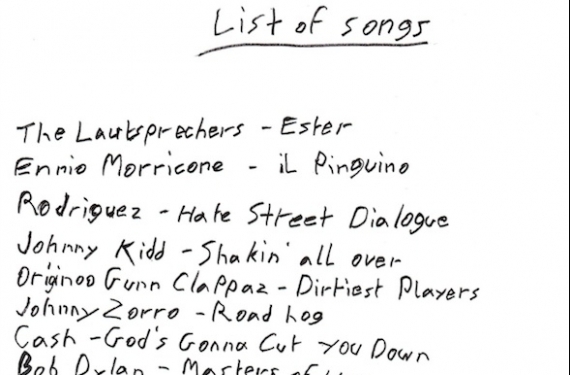 List of songs
The Lautsprechers - Ester
Ennio Morricone - iL Pinguino
Rodriguez - Hate Street Dialogue
Johnny Kidd - Shakin' all over
Originoo Gunn Clappaz - Dirtiest Players
Johnny Zorro - Road hog
Cash - God's Gonna Cut You Down
Bob Dylan - Masters of